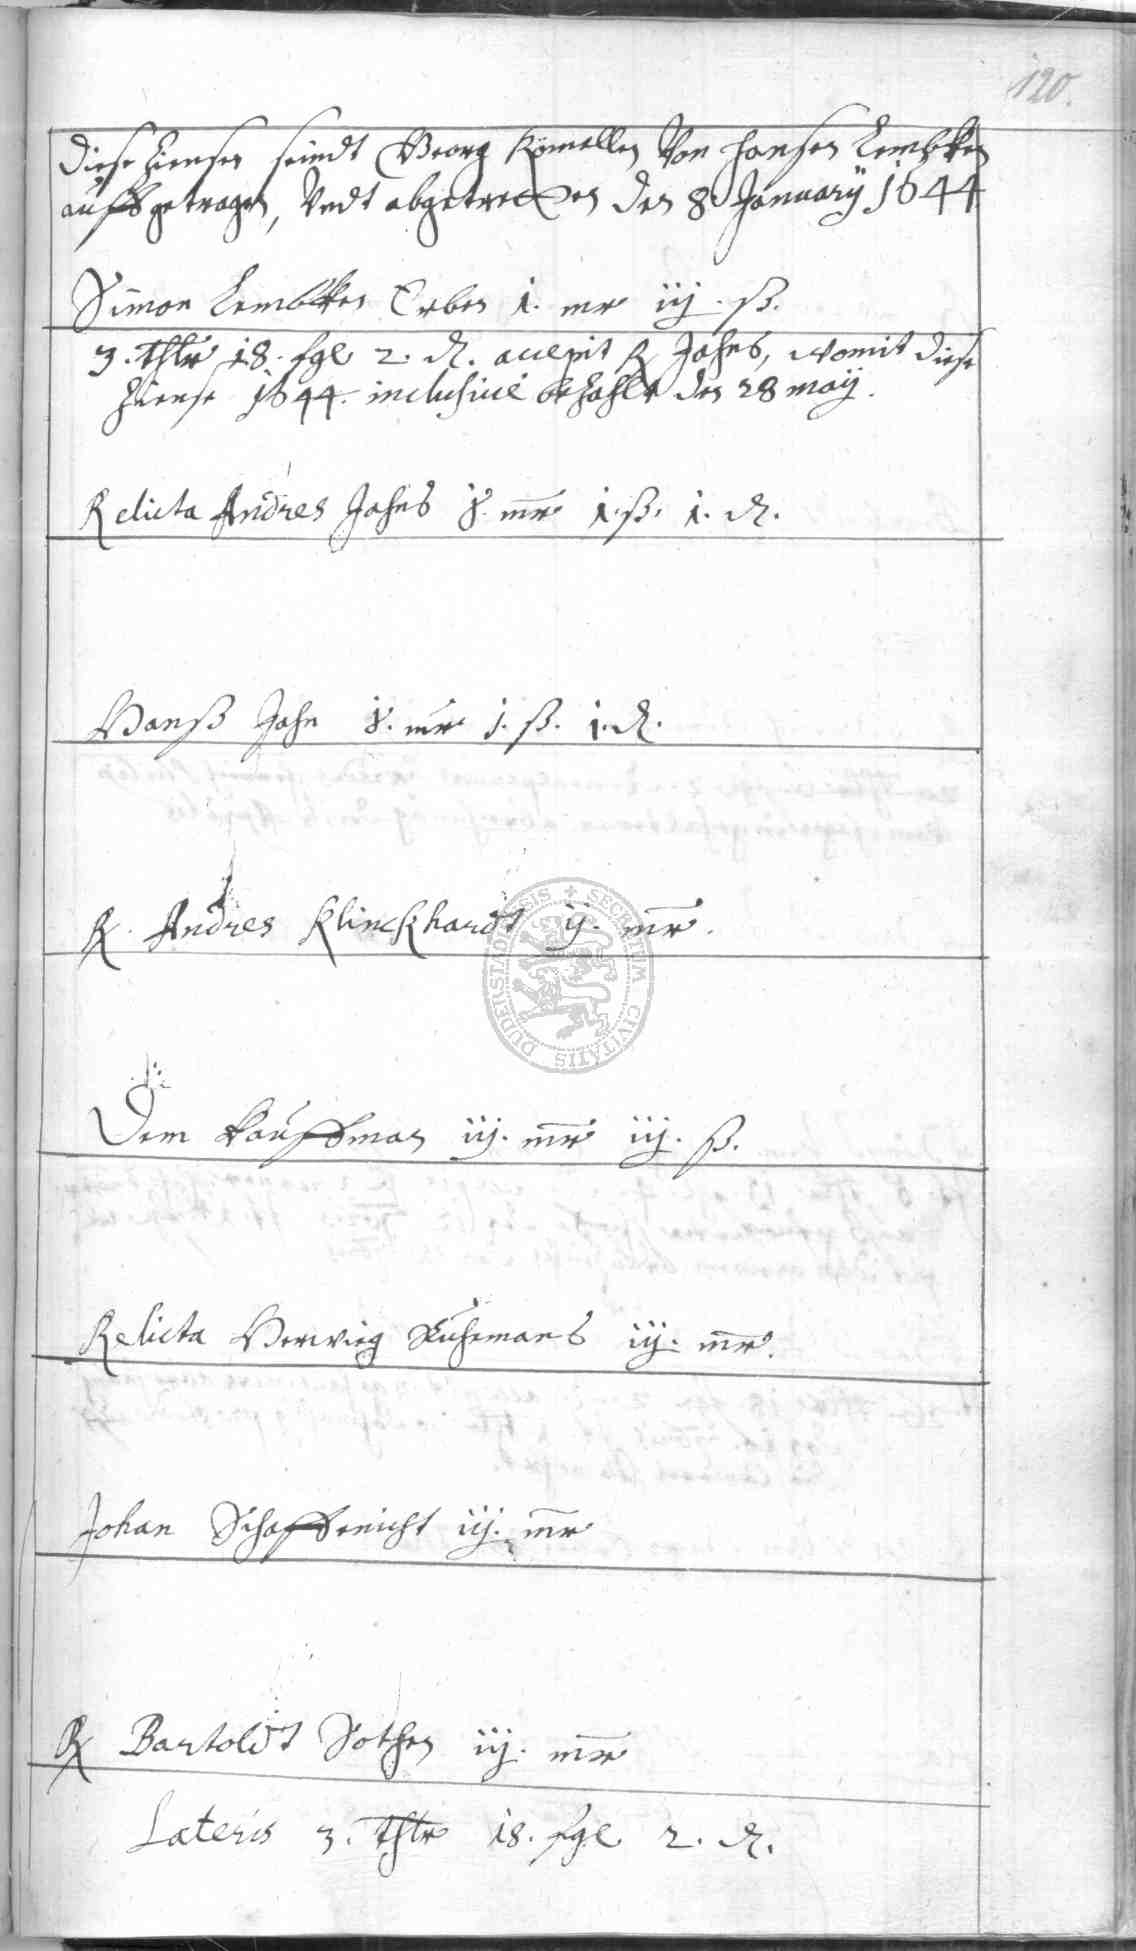 120.
Diese Zienser seindt Georg Kömellen Von Hansen Lembken
auffgetragen, Vndt abgetretten den 8 January 1644
Simon Lembken Erben i. mr iij. ß.
3. thlr 18. fgl 2. d. accepit R Jahns, womit diese
Ziense 1644. inclusiué bezahlt den 28 maij.
Relicta Andres Jahns mr i. ß. i. d.
Hanß Jahn mr j. ß. i. d.
R. Andres Klinckhardt ij. mr.
Dem Kauffman iij. mr iij. ß.
Relicta Herwieg Kuhemans iij. mr.
Johan Schaffenicht iij. mr
R Bartoldt Sothen iij. mr
Lateris 3. thlr 18. fgl 2. d.
SECRETUM CIVITATIS DUDERSTADENSIS